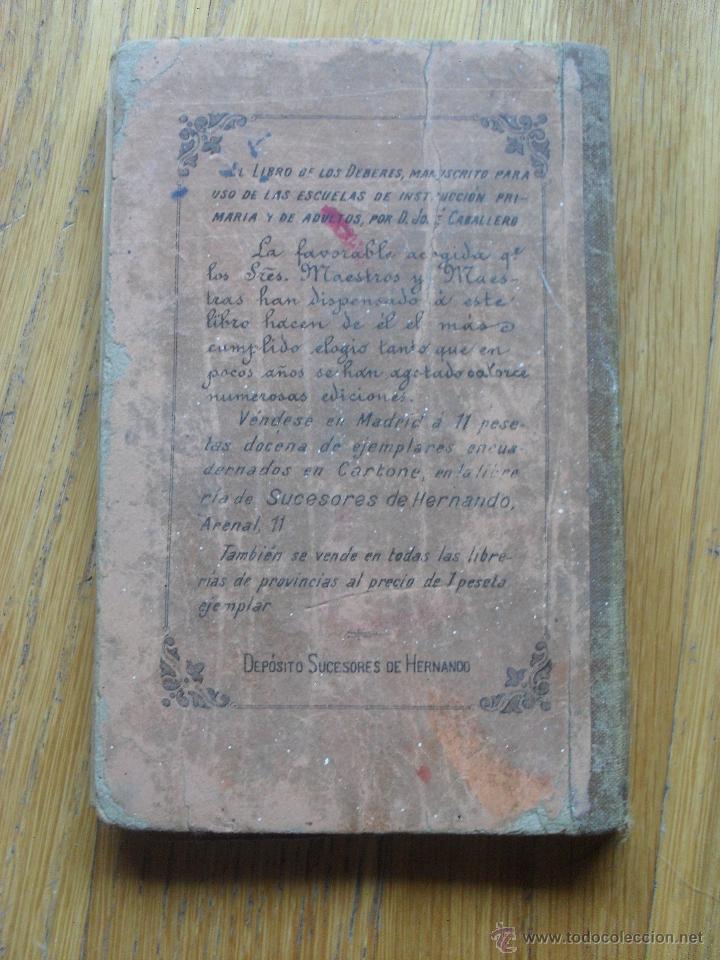 EL LIBRO DE LOS DEBERES, MANUSCRITO PARA
USO DE LAS ESCUELAS DE INSTRUCCIÓN PRI-
MARIA Y DE ADULTOS, POR D. JOSÉ CABALLERO
La favorable acogida q.e
los Sres. Maestros y Maes-
tras han dispensado á este
libro hacen de él el más
cumplido elogio tanto que en
pocos años se han agotado catorce
numerosas ediciones.
Véndese en Madrid á 11 pese-
tas docena de ejemplares encua-
dernados en Cartone, en la libre
ría de Sucesores de Hernando,
Arenal, 11
También se vende en todas las libre-
rías de provincias al precio de 1 peseta
ejemplar
DEPÓSITO SUCESORES DE HERNANDO
© www.todocoleccion.net